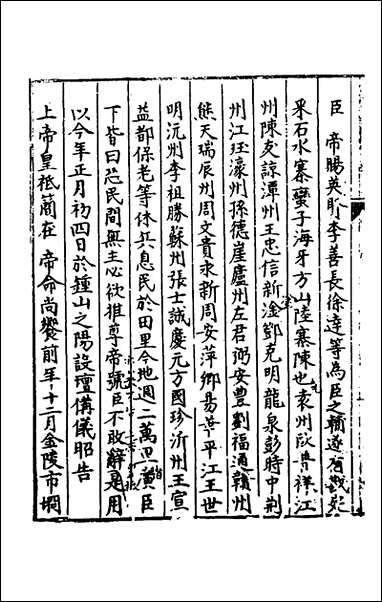 臣 帝賜英賢李善長徐達等為臣之輔遂有戡定
采石水寨蠻子海牙方山陸寨陳也先袁州歐普祥江
州陳友諒潭州王忠信新淦鄧克明龍泉彭時中荊
州江珏濠州孫德崖廬州左君弼安豊劉福通贛州
熊天瑞辰州周文貴永新周安萍鄉易華平江王世
明沅州李祖勝蘇州張士誠慶元方國珍沂州王宣
益都保老等休兵息民於田里今地週二萬里廣臣
下皆曰恐民間無主必欲推尊帝號臣不敢辭是用
以今年正月初四日於鍾山之陽設壇俻儀昭告
上帝皇祗簡在 帝命尚饗前年十二月金陵市